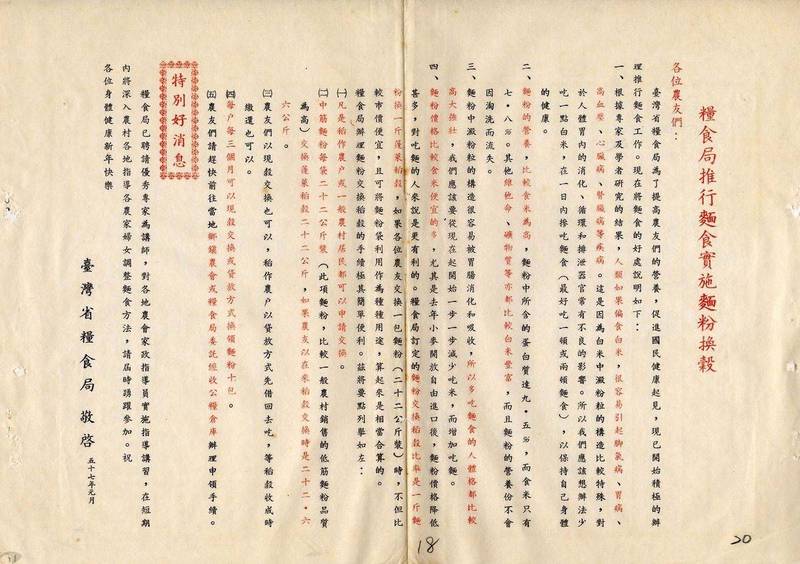 糧食局推行麵食實施麵粉換穀
各位農友們：
臺灣省糧食局為了提高農友們的營養，促進國民健康起見，現已開始積極的辦
理推行麵食工作。現在將麵食的好處說明如下：
一、根據專家及學者研究的結果，人類如果偏食白米，很容易引起腳氣病、胃病、
高血壓、心臟病、腎臟病等疾病。這是因為白米中澱粉粒的構造比較特殊，對
於人體胃內的消化、循環和排泄器官常有不良的影響。所以我們應該想辦法少
吃一點白米，在一日內摻吃麵食（最好吃一頓或兩頓麵食），以保持自己身體
的健康。
二、麵粉的營養，比較食米為高，麵粉中所含的蛋白質達九・五％，而食米只有
七・八％。其他維他命、礦物質等亦都比較白米豐富，而且麵粉的營養份不會
因淘洗而流失。
三、麵粉中澱粉粒的構造很容易被胃腸消化和吸收，所以多吃麵食的人體格都比較
高大強壯，我們應該要從現在起開始一步一步減少吃米，而增加吃麵。
四、麵粉價格比較食米便宜的多，尤其是去年小麥開放自由進口後，麵粉價格降低
甚多，對吃麵的人來說是更有利的。糧食局訂定的麵粉交換稻穀比率是一斤麵
粉換一斤蓬萊稻穀，如果各位農友交換一包麵粉（二十二公斤裝）時，不但比
較市價便宜，且可將麵粉袋利用作為種種用途，算起來是相當合算的。
糧食局辦理麵粉交換稻穀的手續極其簡單便利。茲將要點列舉如左：
㈠凡是稻作農戶或一般農村居民都可以申請交換。
㈡中筋麵粉每袋二十二公斤裝（此項麵粉，比較一般農村銷售的低筋麵粉品質
為高）交換蓬萊稻穀二十二公斤，如果農友以在來稻穀交換時是二十二・六
六公斤。
㈢農友們以現穀交換也可以，稻作農戶以貸放方式先借回去吃，等稻穀收成時
繳還也可以。
㈣每戶每三個月可以現穀交換或貸放方式換領麵粉十包。
㈤農友們請趕快前往當地鄉鎮農會或糧食局委託經收公糧倉庫辦理申領手續。
特別好消息
糧食局已聘請優秀專家為講師，對各地農會家政指導員實施指導講習，在短期
內將深入農村各地指導各農家婦女調整麵食方法，請屆時踴躍參加。祝
各位身體健康新年快樂
臺灣省糧食局 敬啓
五十七年元月
18
20